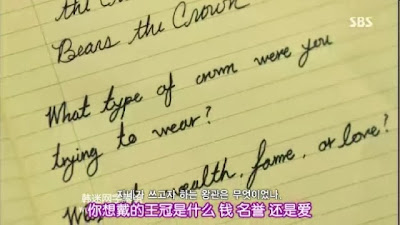 SBS
Bears the Crown
What type of crown were you
trying to wear?
wealth, fame, or love?
쓰고자 하는 왕관은 무엇이었나
你想戴的王冠是什么 钱 名誉 还是爱